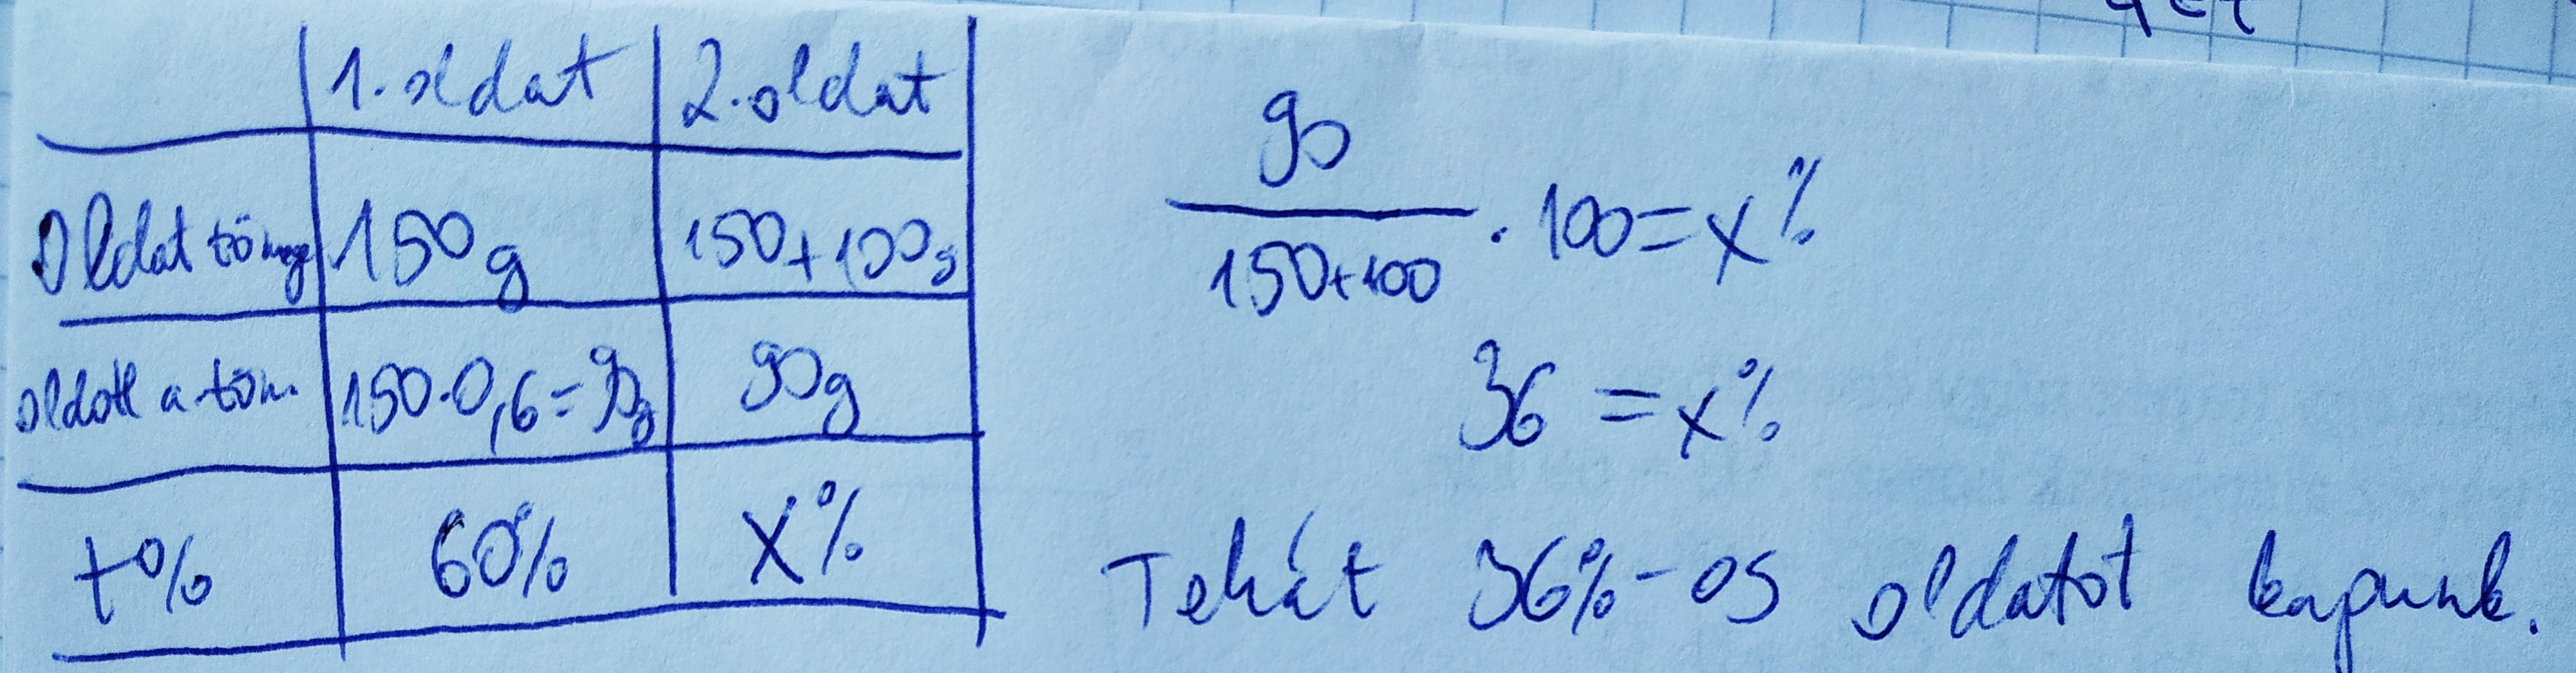 1. oldat 2. oldat
Oldat tömege 150g 150+100g
oldott a. töm. 150·0,6=90g 90g
t% 60% X%
90
150+100 · 100 = x%
36 = x%
Tehát 36%-os oldatot kapunk.